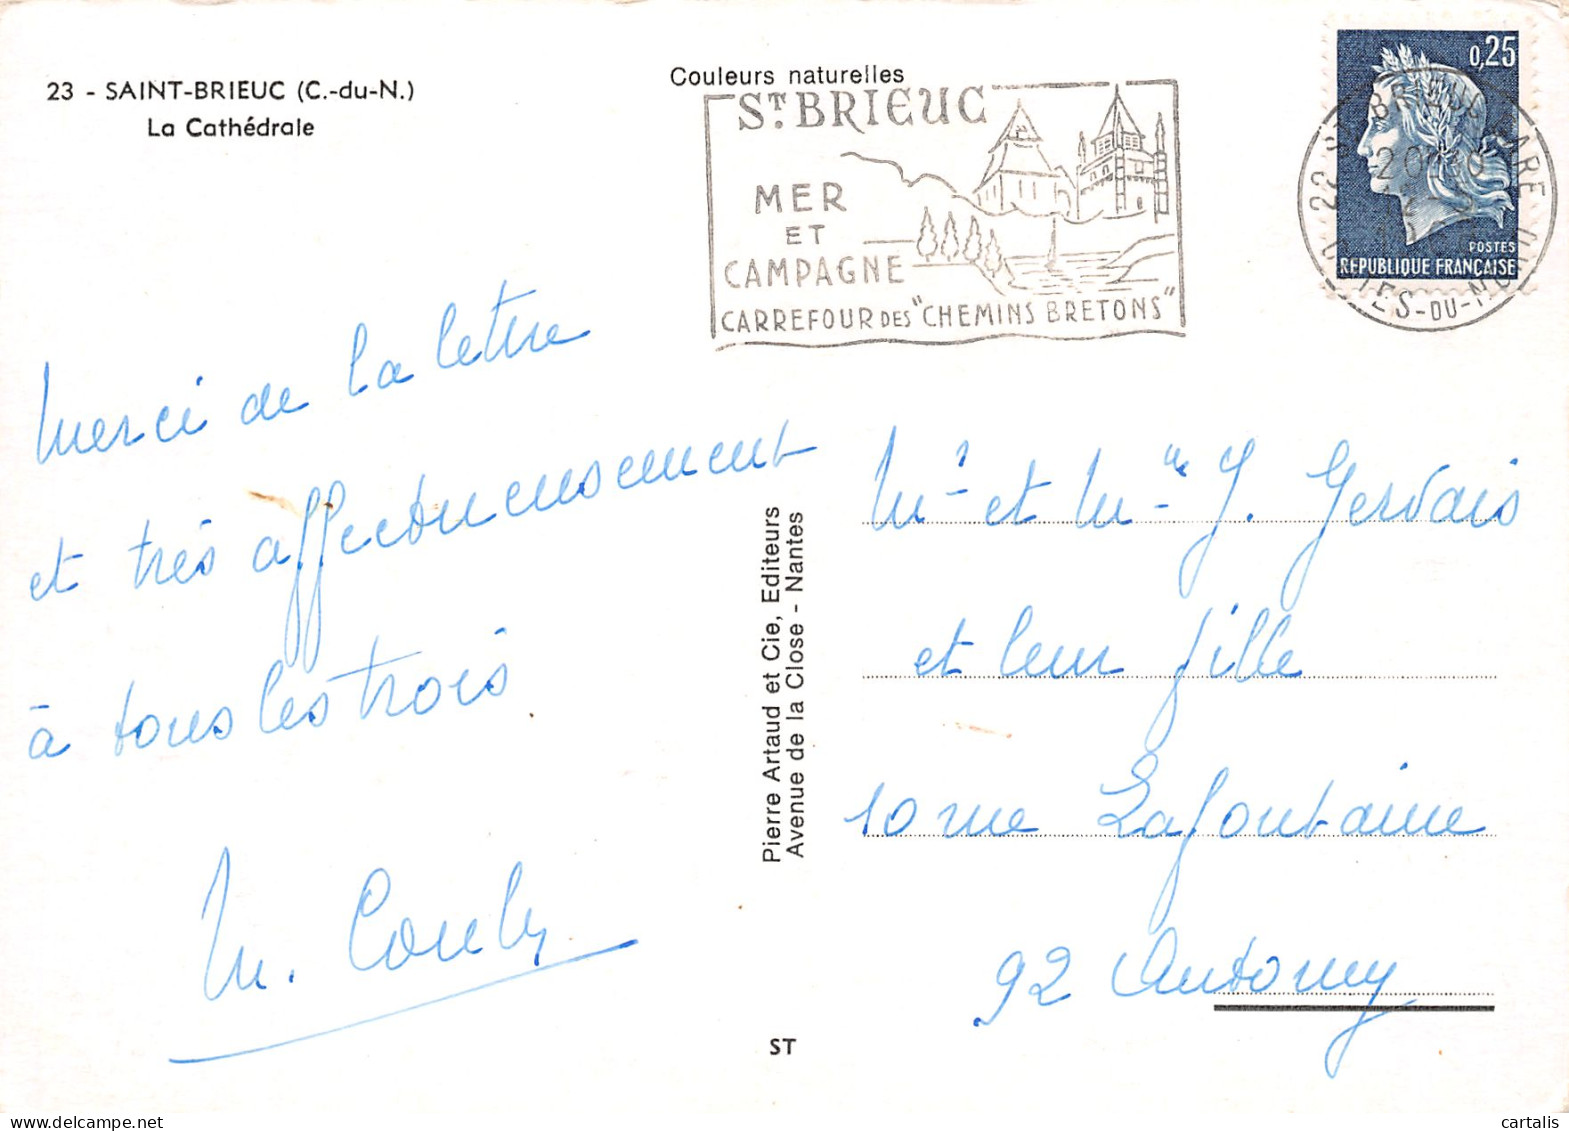 23 - SAINT-BRIEUC (C.-du-N.)
La Cathédrale
Couleurs naturelles
ST BRIEUC
MER
ET
CAMPAGNE
CARREFOUR DES "CHEMINS BRETONS"
0,25
POSTES
REPUBLIQUE FRANÇAISE
22 ST BRIEUC GARE
COTES-DU-NORD
Merci de la lettre
et très affectueusement
à tous les trois
M.
Pierre Artaud et Cie, Editeurs
Avenue de la Close - Nantes
Mr et Mme J. Gervais
et leur fille
10 rue Lafontaine
92 Antony
ST
cartalis